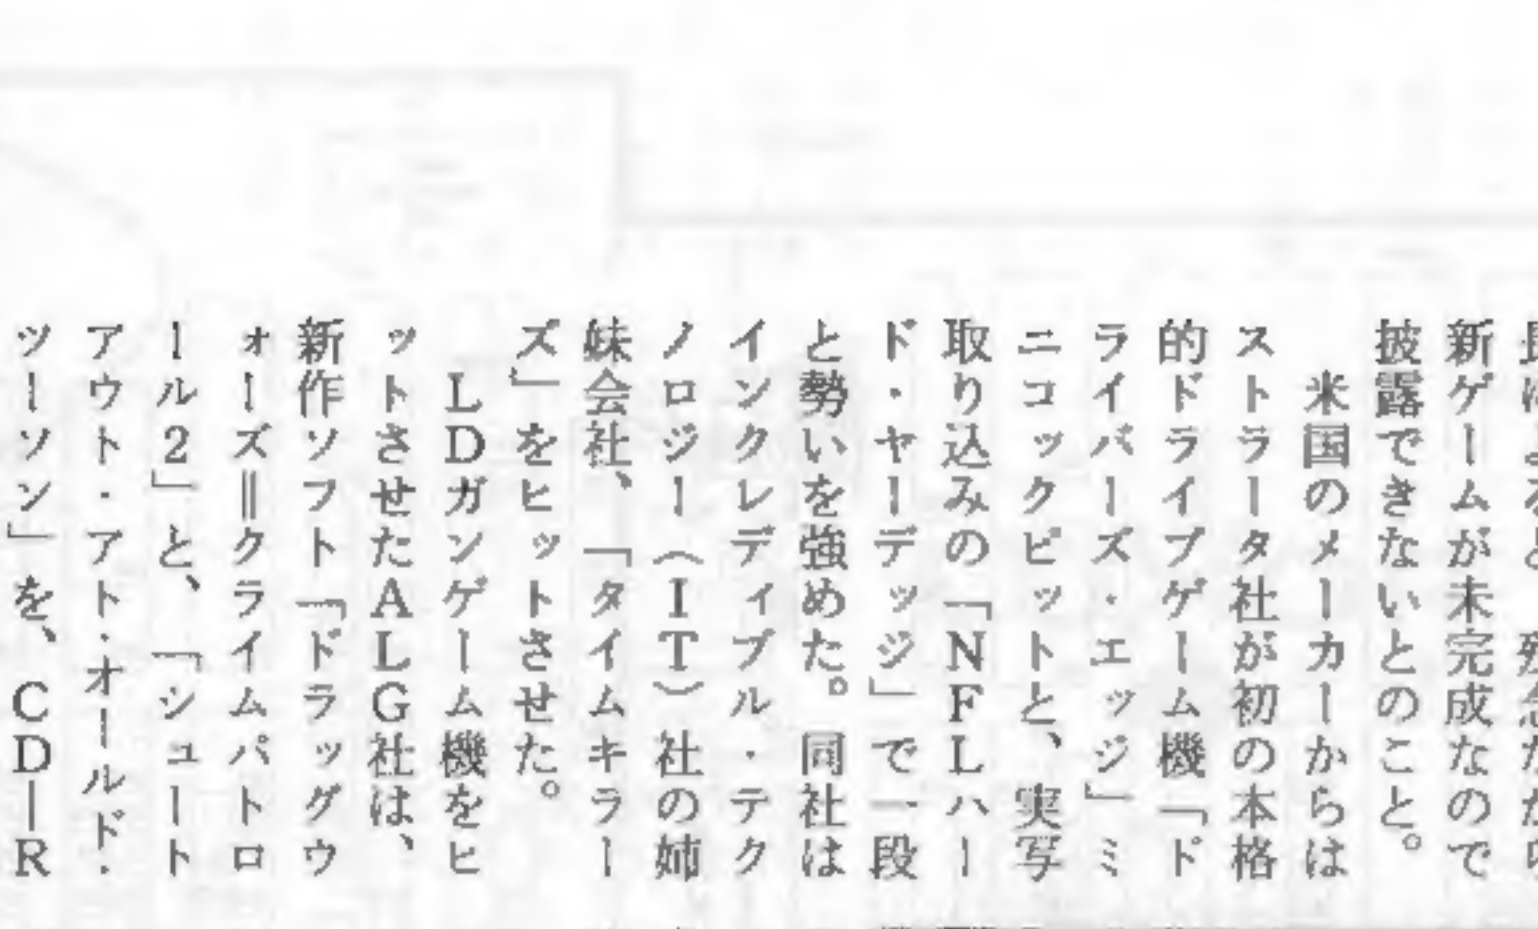 新ゲームが未完成なので
披露できないとのこと。
米国のメーカーからは
ストラータ社が初の本格
的ドライブゲーム機「ド
ライバーズ・エッジ」ミ
ニコックピットと、実写
取り込みの「NFLハー
ド・ヤーデッジ」で一段
と勢いを強めた。同社は
インクレディブル・テク
ノロジー（IT）社の姉
妹会社、「タイムキラー
ズ」をヒットさせた。
LDガンゲーム機をヒ
ットさせたALG社は、
新作ソフト「ドラッグウ
ォーズ＝クライムパトロ
ール2」と、「シュート
アウト・アト・オールド・
ツーソン」を、CD―R